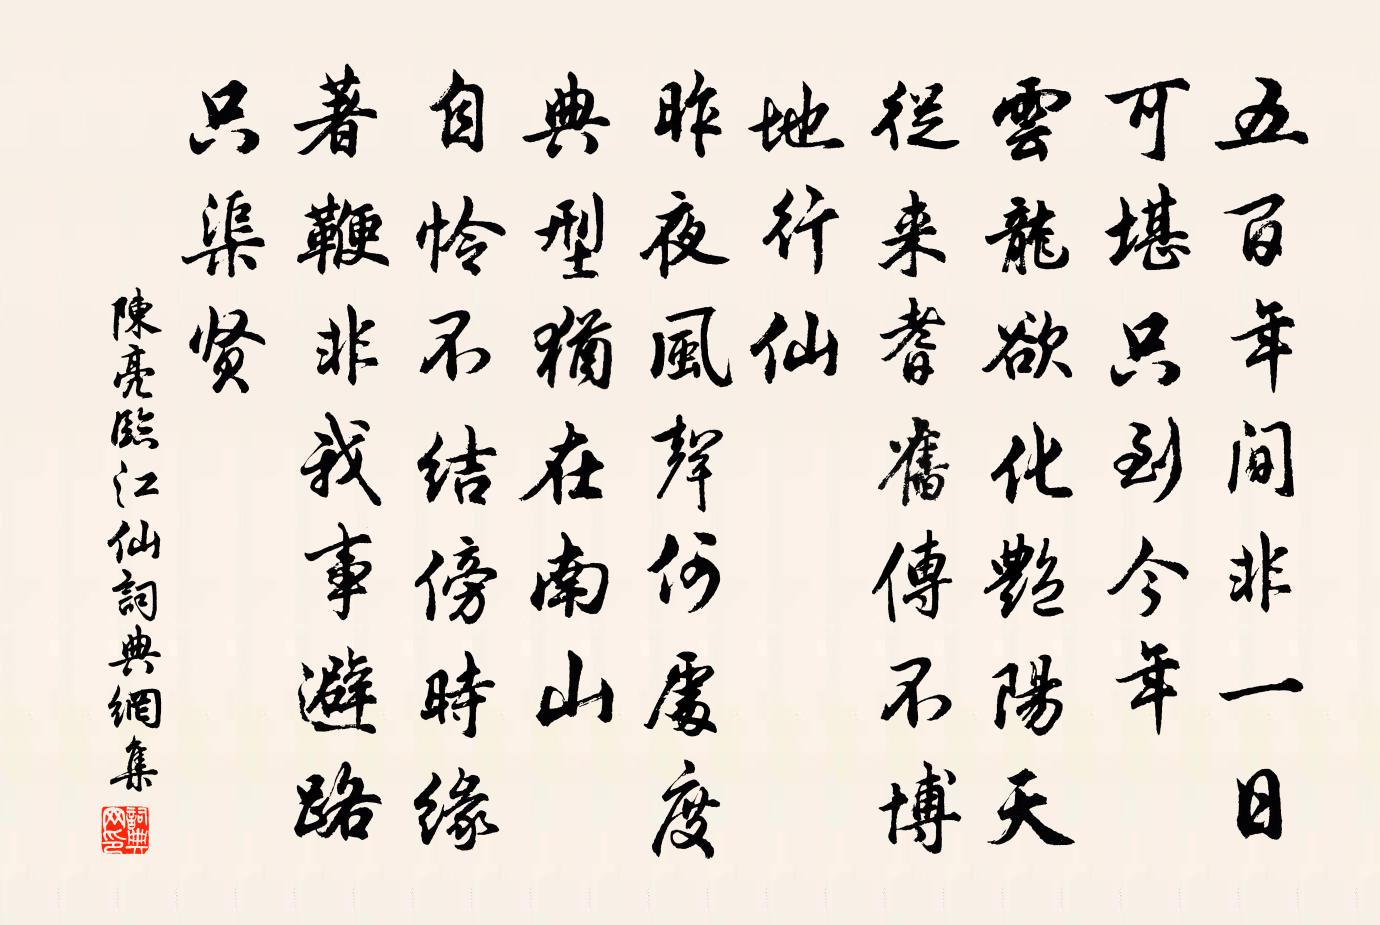 五百年間非一日
可堪只到今年
雲龍欲化艷陽天
從来耆舊傳不博
地行仙
昨夜風聲何處度
典型猶在南山
自怜不結傍時緣
著鞭非我事避路
只渠贤
陳亮臨江仙詞典網集
詞典網印